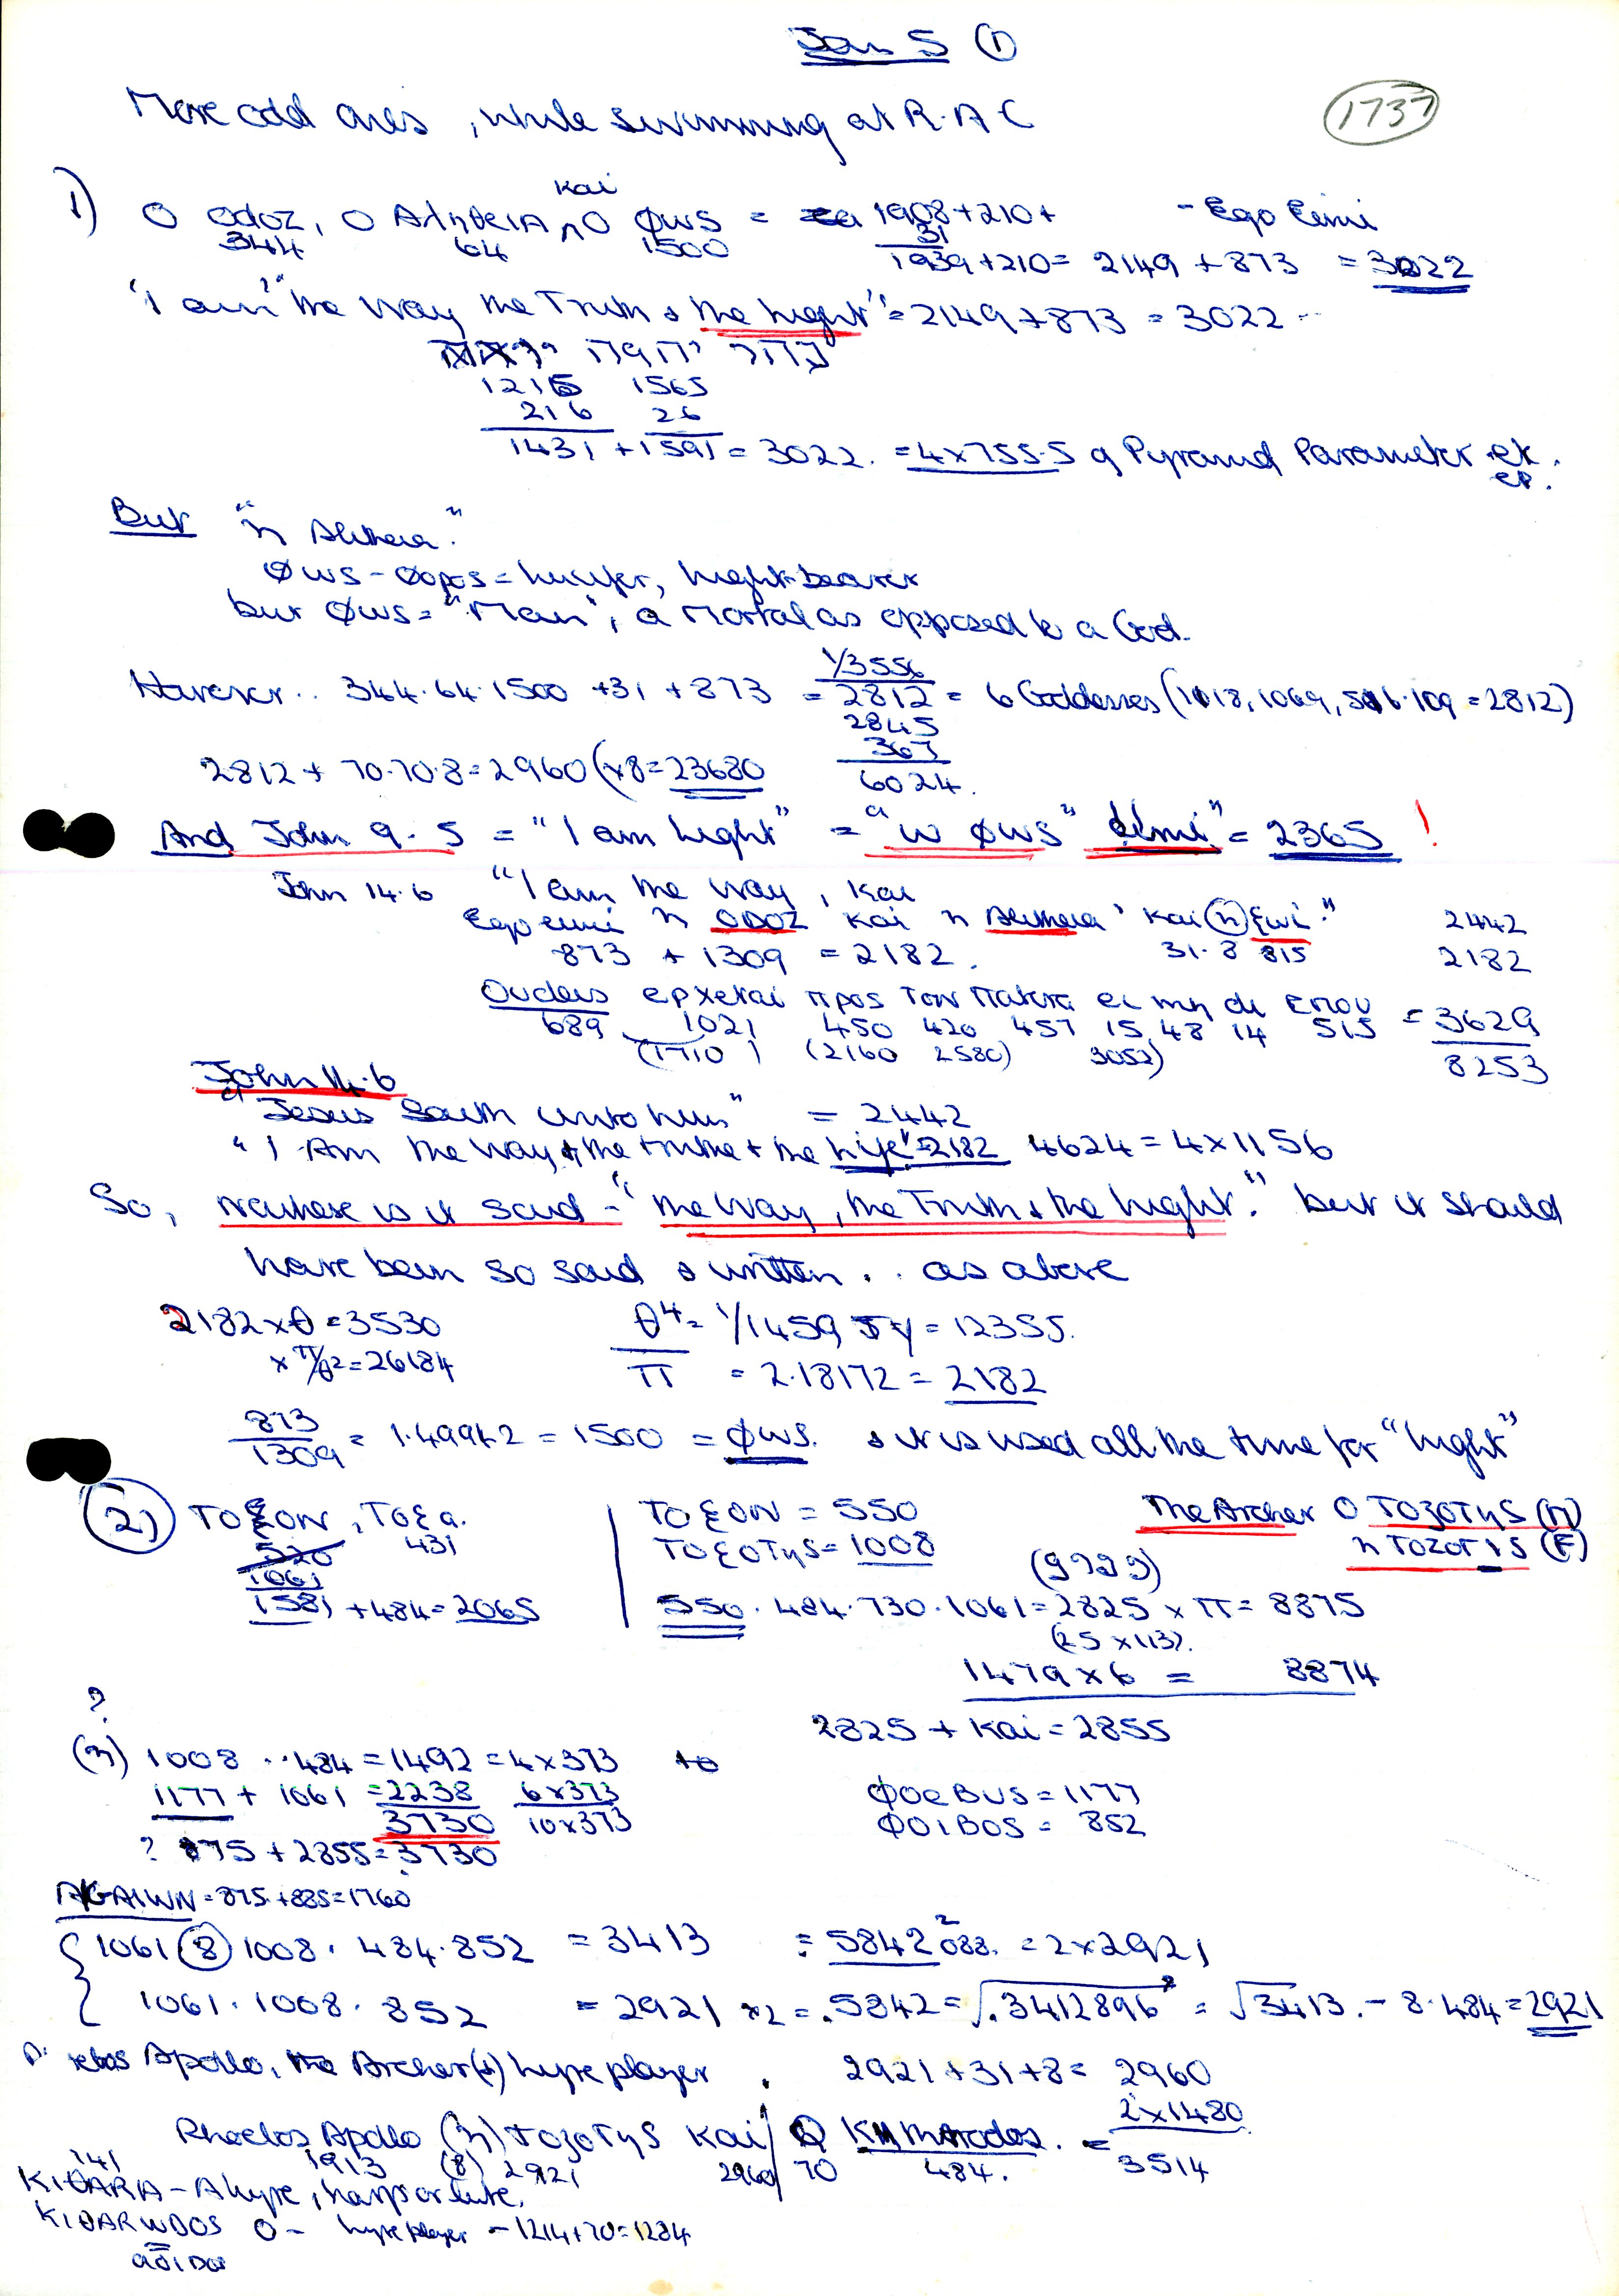 Jan 5 ①
More odd ones, while swimming at R.A.C
1737
1) O Odoz, O AληθeiA ∧ kai O φws = 1908+210+ - Ego Eimi
344 64 1500 31
1939+210= 2149 + 873 = 3022
"I am" "the Way the Truth & the Light" = 2149+873 = 3022
1215 1565
216 26
1431 + 1591 = 3022. = 4x755.5 of Pyramid Parameter
But "η Alitheia."
φws - φopos = Lucifer, Light-bearer
but φws = "Man", a Mortal as opposed to a God.
However.. 344.64.1500 +31 +873 = 2812 = 6 Goddesses (1018, 1069, 516.109 = 2812)
1/3556
2845
367
6024.
2812 + 70.70.8 = 2960 (x8 = 23680
And John 9.5 = "I am Light" = "w φws" eimi" = 2365 !
John 14.6 "I am the Way, kai
Ego eimi η ODOZ kai η Alitheia' kai (η) ξwi." 2442
873 + 1309 = 2182. 31.8 815 2182
Oudeis epxetai πpos Tov Πatepa ei mη di emou = 3629
689 1021 450 420 457 15 48 14 515
(1710) (2160 2580) 3052) 8253
John 14.6
"Jesus Saith unto him" = 2442
"I Am the Way & the truth & the Life" = 2182 4624 = 4x1156
So, nowhere is it said - "the Way, the Truth & the Light." but it should
have been so said & written.. as above
2182 x θ = 3530 θ⁴ = 1/1459, = 12355.
x π/θ² = 26184 π = 2.18172 = 2182
873/1309 = 1.49942 = 1500 = φws. & it is used all the time for "Light"
2) TOξON, Toξa. TOξON = 550 The Archer O TOZOTηS (M)
520 431 TOξOTηS = 1008 η TOZOTIS (F)
1061
1581 + 484 = 2065 550.484.730.1061 = 2825 x π = 8875
(25 x 113).
1479 x 6 = 8874
?
2825 + Kai = 2855
(η) 1008 .. 484 = 1492 = 4x373 to
1177 + 1061 = 2238 6x373 φOeBUS = 1177
3730 10x373 φOIBOS = 852
? 875 + 2855 = 3730
AGAIWN = 875 + 885 = 1760
1061 (8) 1008. 484.852 = 3413 = 5842² = 2x2921
1061.1008.852 = 2921 x2 = .5842 = √.3412896 = √3413. - 8.484 = 2921
Apollo, the Archer (&) Lyre player. 2921 + 31 + 8 = 2960
2x1480
Phoebos Apollo (η) TOZOTηS Kai / O = 3514
1913 (8) 2921 2960 70 484.
141
KIθARA - A lyre, harp or lute.
KIθARWDOS O - lyre player - 1214+70 = 1284